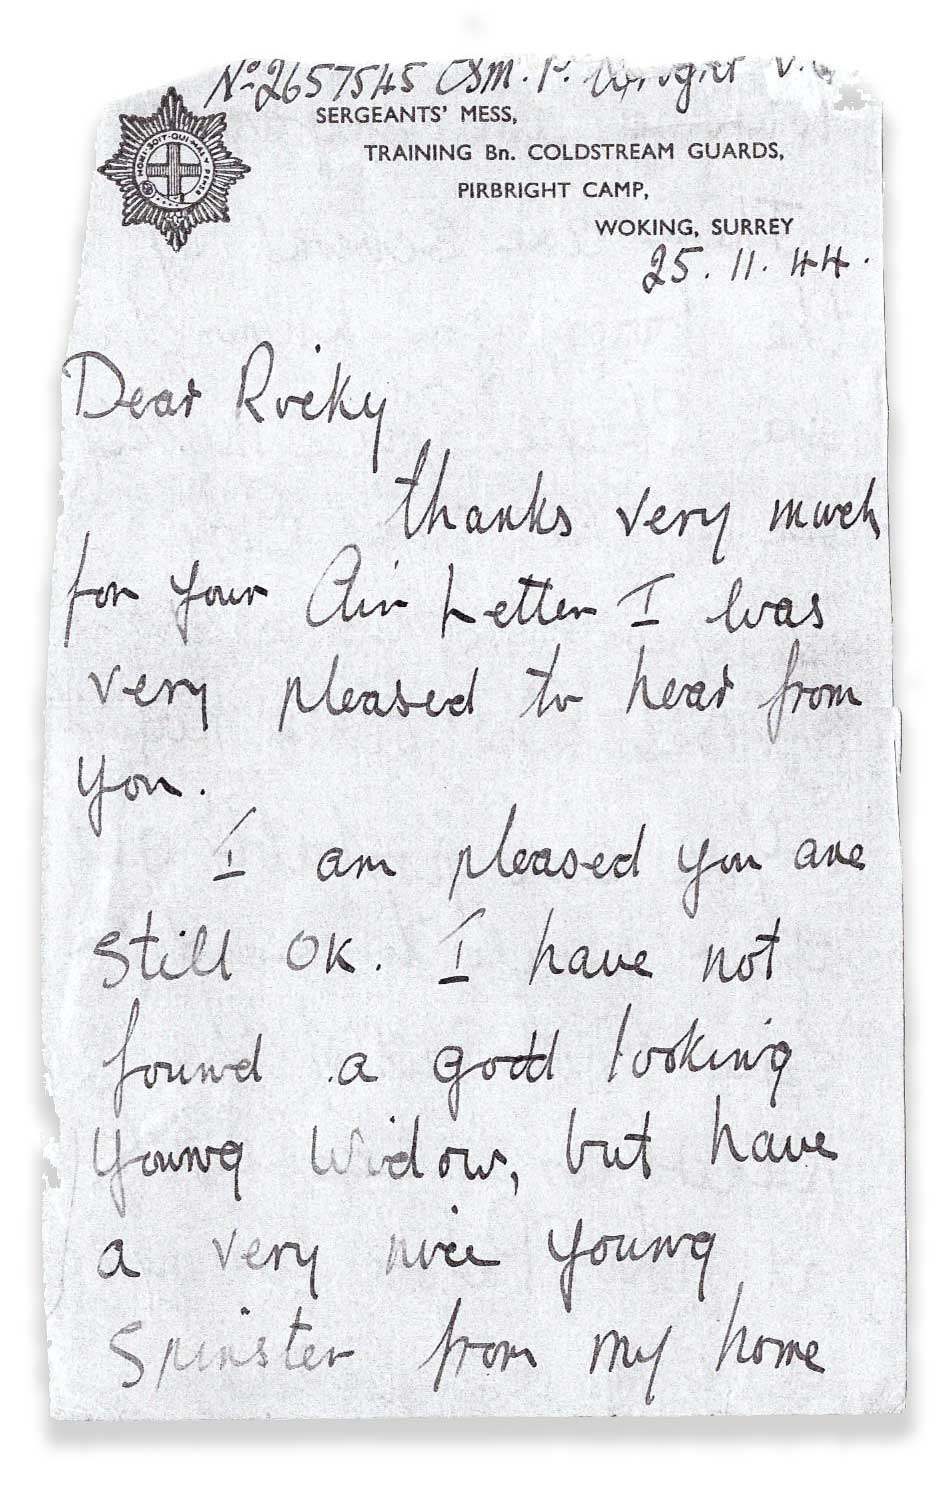 No 2657545 CSM. P. Wright V.C.
HONI·SOIT·QUI·MAL·Y·PENSE
SERGEANTS' MESS,
TRAINING Bn. COLDSTREAM GUARDS,
PIRBRIGHT CAMP,
WOKING, SURREY
25.11.44.
Dear Ricky
thanks very much
for your Air Letter I was
very pleased to hear from
you.
I am pleased you are
still OK. I have not
found a good looking
young Widow, but have
a very nice young
Spinster from my home